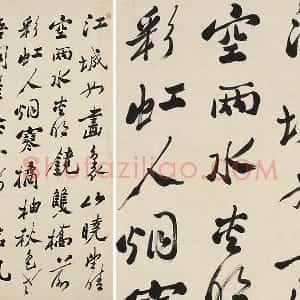 江城如畫裏山曉望晴
空兩水夾明鏡雙橋落
彩虹人烟寒橘柚秋色老
空兩水夾明
彩虹人烟寒
Shufaziliao.COM